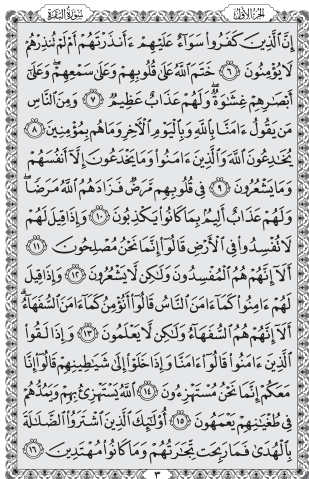 سُورَةُ البَقَرَةِ الجُزءُ الأَوَّلُ
إِنَّ ٱلَّذِينَ كَفَرُوا۟ سَوَآءٌ عَلَيْهِمْ ءَأَنذَرْتَهُمْ أَمْ لَمْ تُنذِرْهُمْ
لَا يُؤْمِنُونَ ٦ خَتَمَ ٱللَّهُ عَلَىٰ قُلُوبِهِمْ وَعَلَىٰ سَمْعِهِمْ ۖ وَعَلَىٰٓ
أَبْصَٰرِهِمْ غِشَٰوَةٌ ۖ وَلَهُمْ عَذَابٌ عَظِيمٌ ٧ وَمِنَ ٱلنَّاسِ
مَن يَقُولُ ءَامَنَّا بِٱللَّهِ وَبِٱلْيَوْمِ ٱلْءَاخِرِ وَمَا هُم بِمُؤْمِنِينَ ٨
يُخَٰدِعُونَ ٱللَّهَ وَٱلَّذِينَ ءَامَنُوا۟ وَمَا يَخْدَعُونَ إِلَّآ أَنفُسَهُمْ
وَمَا يَشْعُرُونَ ٩ فِى قُلُوبِهِم مَّرَضٌ فَزَادَهُمُ ٱللَّهُ مَرَضًا ۖ
وَلَهُمْ عَذَابٌ أَلِيمٌۢ بِمَا كَانُوا۟ يَكْذِبُونَ ١٠ وَإِذَا قِيلَ لَهُمْ
لَا تُفْسِدُوا۟ فِى ٱلْأَرْضِ قَالُوٓا۟ إِنَّمَا نَحْنُ مُصْلِحُونَ ١١
أَلَآ إِنَّهُمْ هُمُ ٱلْمُفْسِدُونَ وَلَٰكِن لَّا يَشْعُرُونَ ١٢ وَإِذَا قِيلَ
لَهُمْ ءَامِنُوا۟ كَمَآ ءَامَنَ ٱلنَّاسُ قَالُوٓا۟ أَنُؤْمِنُ كَمَآ ءَامَنَ ٱلسُّفَهَآءُ ۗ
أَلَآ إِنَّهُمْ هُمُ ٱلسُّفَهَآءُ وَلَٰكِن لَّا يَعْلَمُونَ ١٣ وَإِذَا لَقُوا۟
ٱلَّذِينَ ءَامَنُوا۟ قَالُوٓا۟ ءَامَنَّا وَإِذَا خَلَوْا۟ إِلَىٰ شَيَٰطِينِهِمْ قَالُوٓا۟ إِنَّا
مَعَكُمْ إِنَّمَا نَحْنُ مُسْتَهْزِءُونَ ١٤ ٱللَّهُ يَسْتَهْزِئُ بِهِمْ وَيَمُدُّهُمْ
فِى طُغْيَٰنِهِمْ يَعْمَهُونَ ١٥ أُو۟لَٰٓئِكَ ٱلَّذِينَ ٱشْتَرَوُا۟ ٱلضَّلَٰلَةَ
بِٱلْهُدَىٰ فَمَا رَبِحَت تِّجَٰرَتُهُمْ وَمَا كَانُوا۟ مُهْتَدِينَ ١٦
٣